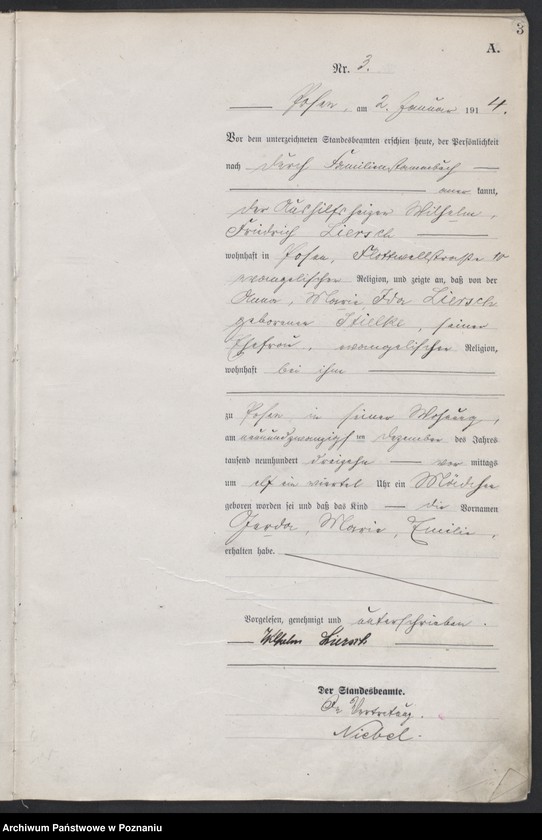 3
A.
Nr. 3.
Posen, am 2. Januar 1914.
Vor dem unterzeichneten Standesbeamten erschien heute, der Persönlichkeit
nach durch Familienstammbuch
aner kannt,
der Aushilfsheizer Wilhelm,
Friedrich Liersch
wohnhaft in Posen, Flottwellstraße 10
evangelischer Religion, und zeigte an, daß von der
Anna, Marie Ida Liersch
geborenen Stielke, seiner
Ehefrau, evangelischer Religion,
wohnhaft bei ihm
zu Posen in seiner Wohnung,
am neunundzwanzigsten Dezember des Jahres
tausend neunhundert dreizehn vor mittags
um elf ein viertel Uhr ein Mädchen
geboren worden sei und daß das Kind die Vornamen
Gerda, Marie, Emilie,
erhalten habe.
Vorgelesen, genehmigt und unterschrieben.
Wilhelm Liersch
Der Standesbeamte.
In Vertretung.
Niebel.
Archiwum Państwowe w Poznaniu